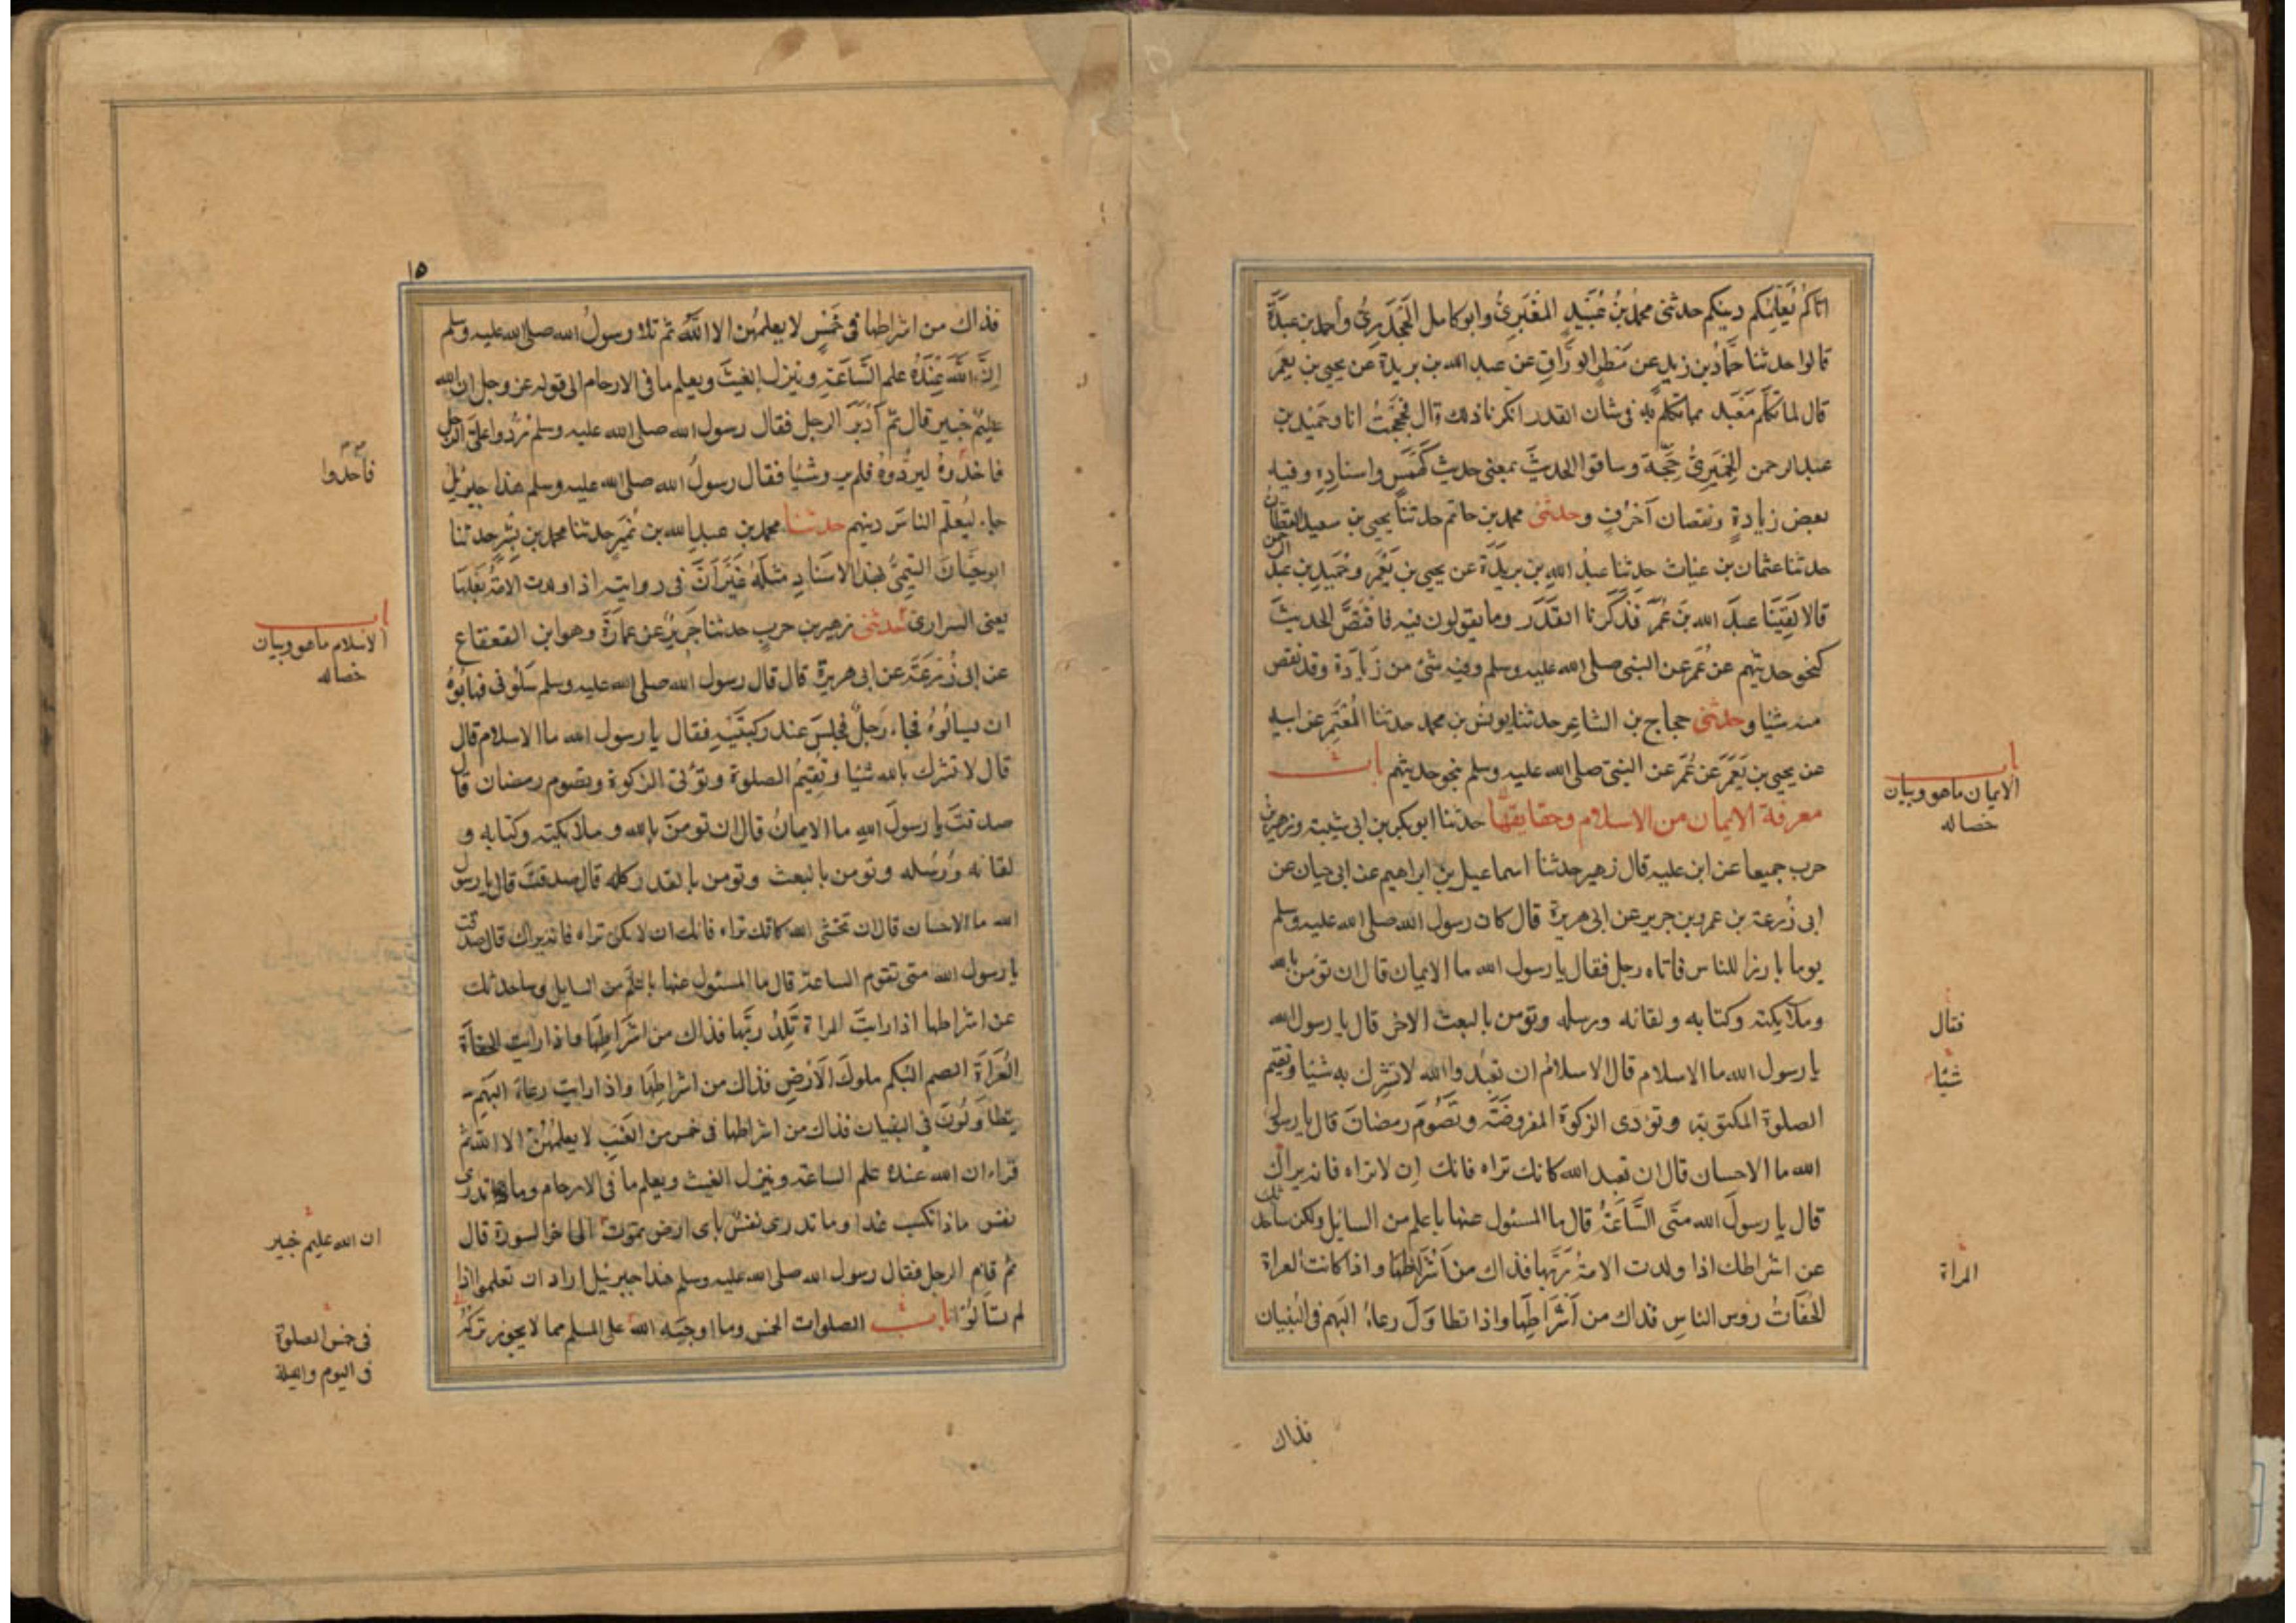 اتاكم يُعَلِّمُكم دينكم حدثنى محمدُ بنُ عُبَيْدٍ الغُبَرِىُّ وابو كامل الجَحْدَرِىُّ وأحمد بن عبدَةَ
قالوا حدثنا حمّادُ بن زيدٍ عن مَطَرٍ الورَّاقِ عن عبد الله بن بريدة عن يحيى بن يعمر
قال لما تكَلَّم مَعْبَد بما تكلّم به فى شان القدر انكرنا ذلك قال فحججتُ انا وحُمَيْد بن
عبد الرحمن الحِمْيَرِىُّ حِجَّة وساقوا الحديثَ بمعنى حديث كَهْمَسٍ واسنادِهِ وفيه
بعض زيادةٍ ونقصان آخرُفٍ وحدثنى محمد بن حاتم حدثنا يحيى بن سعيد القطان
حدثنا عثمان بن غياث حدثنا عبدُ اللهِ بن بريْدَة عن يحيى بن يَعْمُر وحُمَيْدِ بن عبد الرحمن
قالا لقِيَنَا عبدَ الله بنَ عُمَرَ فذَكَرنا القَدَر وما يقولون فيه فاقتصَّ الحديثَ
كنحو حديثهم عن عُمَر عن النبى صلى الله عليه وسلم وفيه شئ من زيادَة وقد نقص
منه شيئا وحدثنى حجاج بن الشاعِر حدثنا يونس بن محمد حدثنا المُعْتَمِر عن ابيه
عن يحيى بن يَعْمَرَ عن عُمَر عن النبىّ صلى الله عليه وسلم بنحو حديثهم باب
معرفة الايمان من الاسلام وحقايقها حدثنا ابو بكر بن ابى شيبة وزهير بن
حرب جميعا عن ابن علية قال زهير حدثنا اسماعيل بن ابراهيم عن ابى حيان عن
ابى زُرعة بن عمرو بن جرير عن ابى هريرة قال كان رسول الله صلى الله عليه وسلم
يوما بارزا للناس فاتاه رجل فقال يا رسول الله ما الايمان قال ان تؤمن بالله
وملائكته وكتابه ولقائه ورسله وتؤمن بالبعث الاخر قال يا رسول الله
يا رسول الله ما الاسلام قال الاسلامُ ان تعبُدوا الله لا تشرك به شيئا وتقيم
الصلوة المكتوبة وتؤدى الزكوة المفروضَة وتَصُومَ رمضانَ قال يا رسول
الله ما الاحسان قال ان تعبد الله كانك تراه فانك إن لا تراه فانه يراك
قال يا رسولَ الله متَى السَّاعَةُ قال ما المسئول عنها باعلم من السائل ولكن ساحدثك
عن اشراطك اذا ولدت الامةُ ربَّها فذاك من أَشْرَاطِهَا واذا كانت العراة
الحُفَاتُ رؤس الناسِ فذاك من أَشْرَاطِهَا واذا تطاوَلَ رعاءُ البَهم فى البُنيان
فذاك
باب
الايمان ماهو وبيان
خصاله
فقال
شيئا
المرأة
١٥
فذاك من اشراطها فى خَمْسٍ لا يعلمُهن الا اللهُ ثم تلا رسولُ الله صلى الله عليه وسلم
إنَّ اللّه عِنْدَهُ علم السَّاعَةِ وينزل الغيثَ ويعلم ما فى الارحام الى قوله عز وجل ان الله
عليمٌ خبير قال ثم أَدْبَرَ الرجل فقال رسول الله صلى الله عليه وسلم رُدُّوا علىَّ الرجل
فاخذوهُ ليردُّوهُ فلم يروشئًا فقال رسولُ الله صلى الله عليه وسلم هذا جبرئيل
جاء ليُعَلِّم الناسَ دينهم حدثنا محمد بن عبدِ الله بن نُمَيْرٍ حدثنا محمد بن بِشْرٍ حدثنا
ابو حَيَّانَ التيمِىُّ بهذا الاسنادِ مثلَهُ غيرَ أَنَّ فى روايته اذا ولدت الامةُ بَعْلَهَا
يعنى السرارى حدثنى زهير بن حربٍ حدثنا جَريرٌ عن عمارَةَ وهو ابن القعقاع
عن ابى زُرْعَةَ عن ابى هريرة قال قال رسول الله صلى الله عليه وسلم سَلُونى فهابُوهُ
ان يسالُوهُ فجاء رَجلٌ فجلسَ عند ركبتَيْهِ فقال يا رسول الله ما الاسلام قال
قال لا تشرك بالله شيئا وتُقِيمُ الصلوة وتؤتى الزكوة وتصوم رمضان قال
صدقتَ يا رسولَ اللهِ ما الايمانُ قال ان تومنَ بالله وملائكته وكتابه و
لقائه ورُسُله وتومن بالبعث وتومن بالقدر كله قال صدقتَ قال يا رسول
الله ما الاحسان قال ان تخشى الله كانك تراه فانك ان لا تكن تراه فانه يراك قال صدقت
يا رسول الله متى تقوم الساعة قال ما المسئول عنها باعلم من السايل وساحدثك
عن اشراطها اذا رايتَ المراة تَلِدُ ربَّها فذاك من اشْرَاطِهَا واذا رايت الحفاةَ
العُرَاةَ الصم البُكم ملوكَ الاَرضِ فذاك من اشراطِهَا واذا رايت رعاءَ البَهم
يتطاوَلُونَ فى البنيان فذاك من اشراطها فى خمس من الغَيبِ لا يعلمُهُنّ الا اللّه ثم
قراء ان الله عنده علم الساعة وينزل الغيث ويعلم ما فى الارحام وما تدرى
نفس ماذا تكسب غدا وما تدرى نفسٌ باى ارض تموت الى اخر السورة قال
ثم قام الرجل فقال رسول الله صلى الله عليه وسلم هذا جبرئيل اراد ان تعلموا اذا
لم تسألُوا باب الصلوات الخمس وما اوجبَه اللّه على المسلم مما لا يجوز تركُه
فاخذوا
باب
الاسلام ماهو وبيان
خصاله
ان الله عليم خبير
فى خمس الصلوة
فى اليوم والليلة